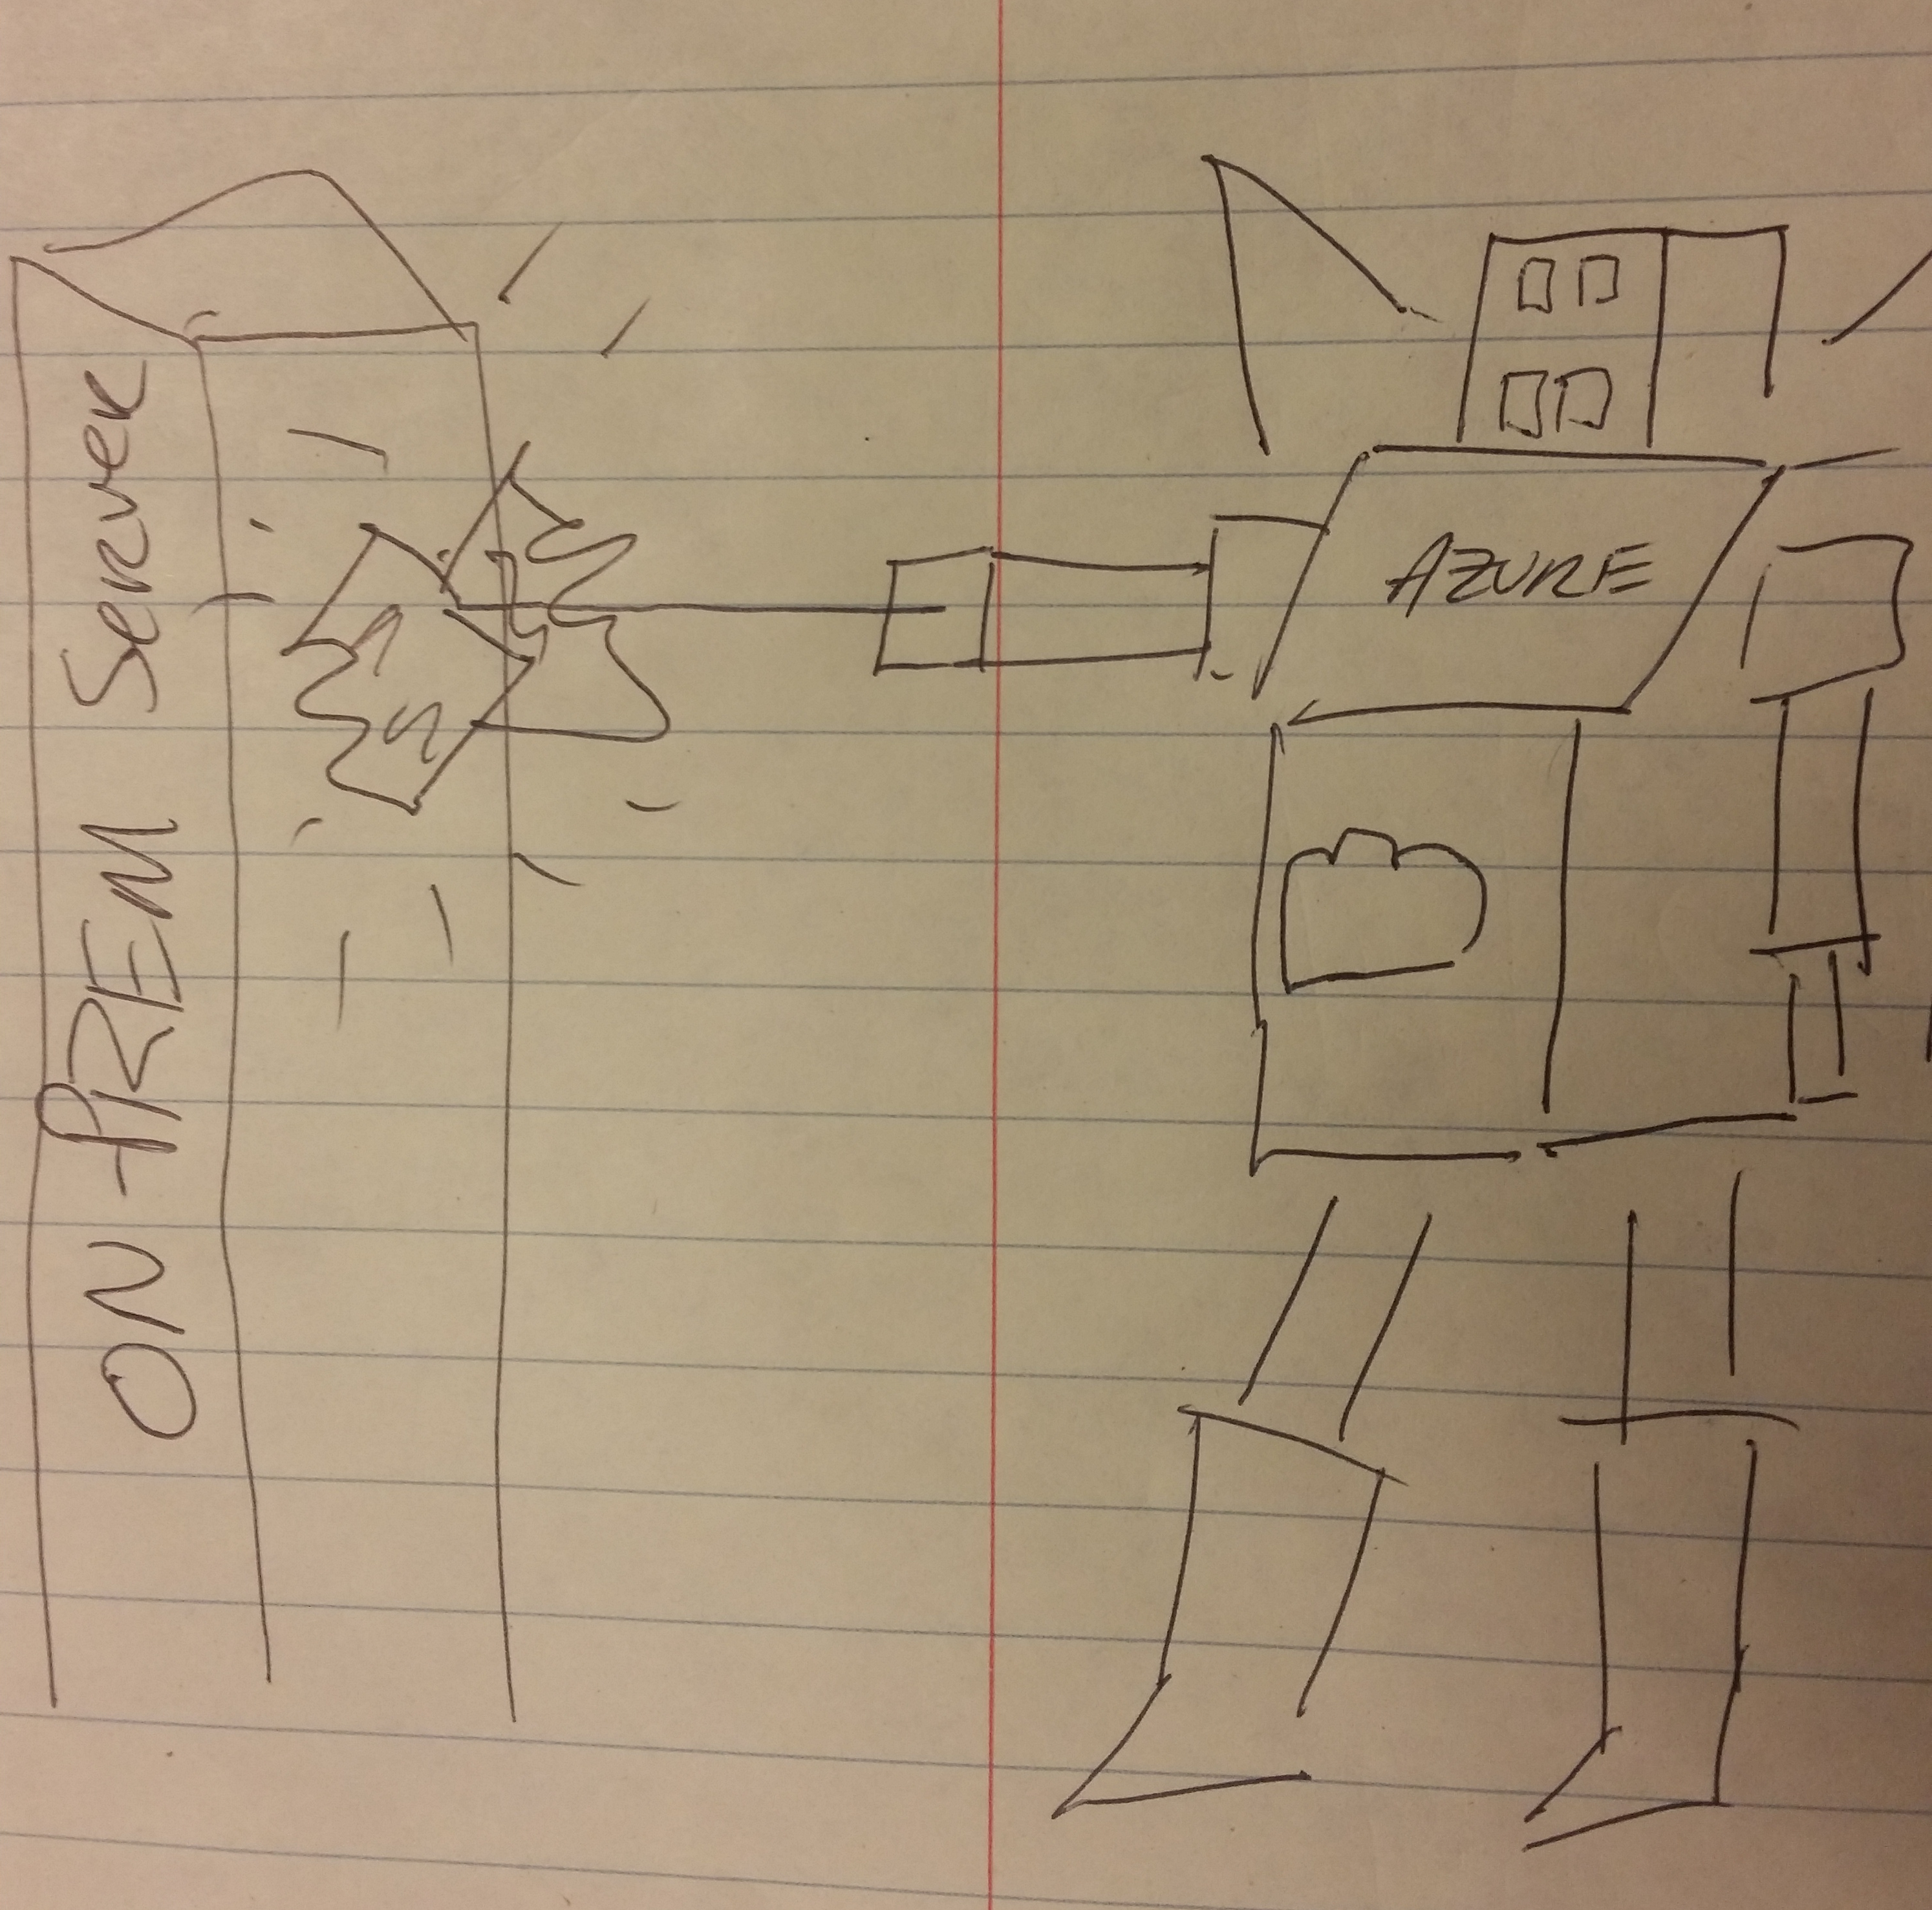 ON-PREM Server
AZURE